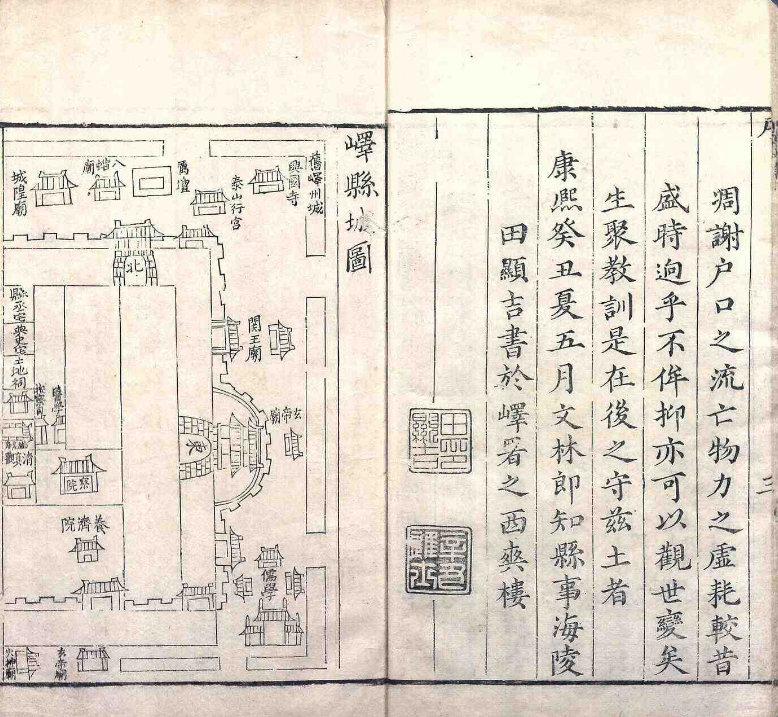 凋謝户口之流亡物力之虛耗較昔
盛時逈乎不侔抑亦可以觀世變矣
生聚教訓是在後之守茲土者
康熙癸丑夏五月文林郎知縣事海陵
田顯吉書於嶧署之西爽樓
三
田印顯吉
嶧縣城圖
舊嶧州城
興國寺
泰山行宮
厲壇
八蜡廟
城隍廟
北
縣丞宅
典史宅
土地祠
関王廟
玄帝廟
東
察院
養濟院
儒學
玄帝廟
火神廟